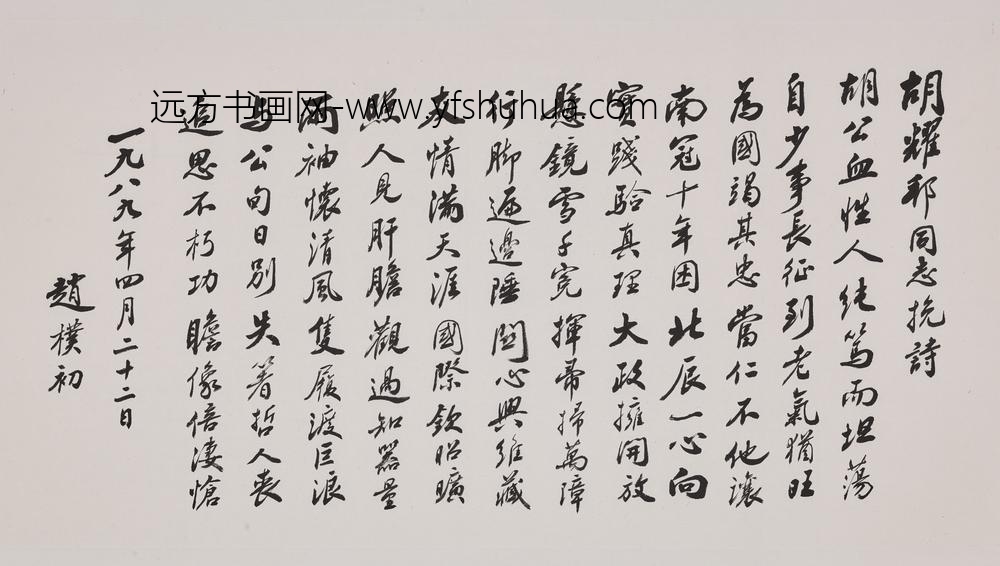 胡耀邦同志挽詩
胡公血性人純篤而坦蕩
自少事長征到老氣猶旺
為國竭其忠當仁不他讓
南冠十年困北辰一心向
實踐驗真理大政擁開放
懸鏡雪千冤揮帚掃萬障
行脚遍邊陲關心興維藏
友情滿天涯國際欽昭曠
照人見肝膽觀過知器量
兩袖懷清風隻履渡巨浪
與公旬日別失箸哲人喪
追思不朽功瞻像倍淒愴
一九八九年四月二十二日
趙樸初
远方书画网-www.yfshuhua.com